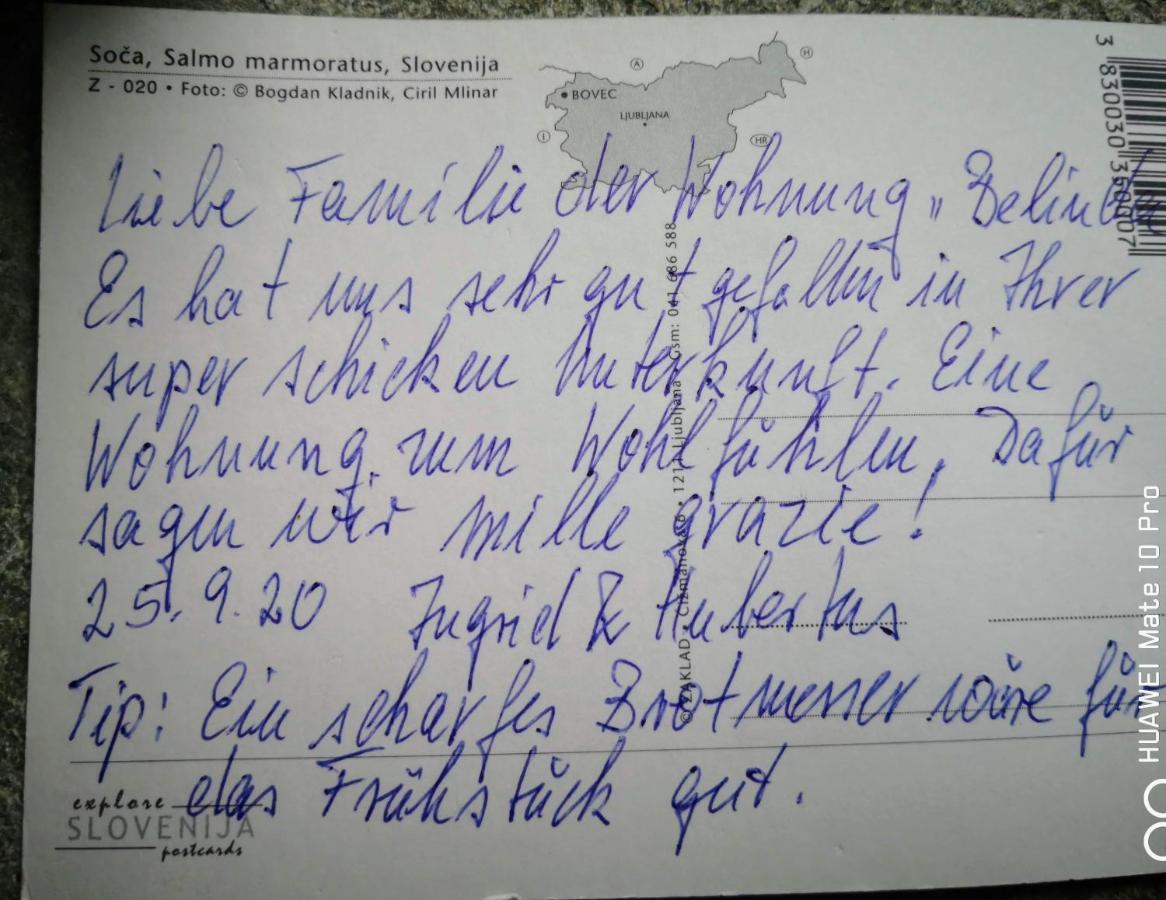 Soča, Salmo marmoratus, Slovenija
Z - 020 • Foto: © Bogdan Kladnik, Ciril Mlinar
A
H
BOVEC
LJUBLJANA
I
HR
3 830030 360007
Liebe Familie der Wohnung „Belinda
Es hat uns sehr gut gefallen in Ihrer
super schicken Unterkunft. Eine
Wohnung zum Wohlfühlen. Dafür
sagen wir mille grazie!
25.9.20 Ingrid & Hubertus
Tip: Ein scharfes Brotmesser wäre für
das Frühstück gut.
© ZAKLAD • Ljubljana • Gsm: 041 686 588
explore
SLOVENIJA
postcards
HUAWEI Mate 10 Pro